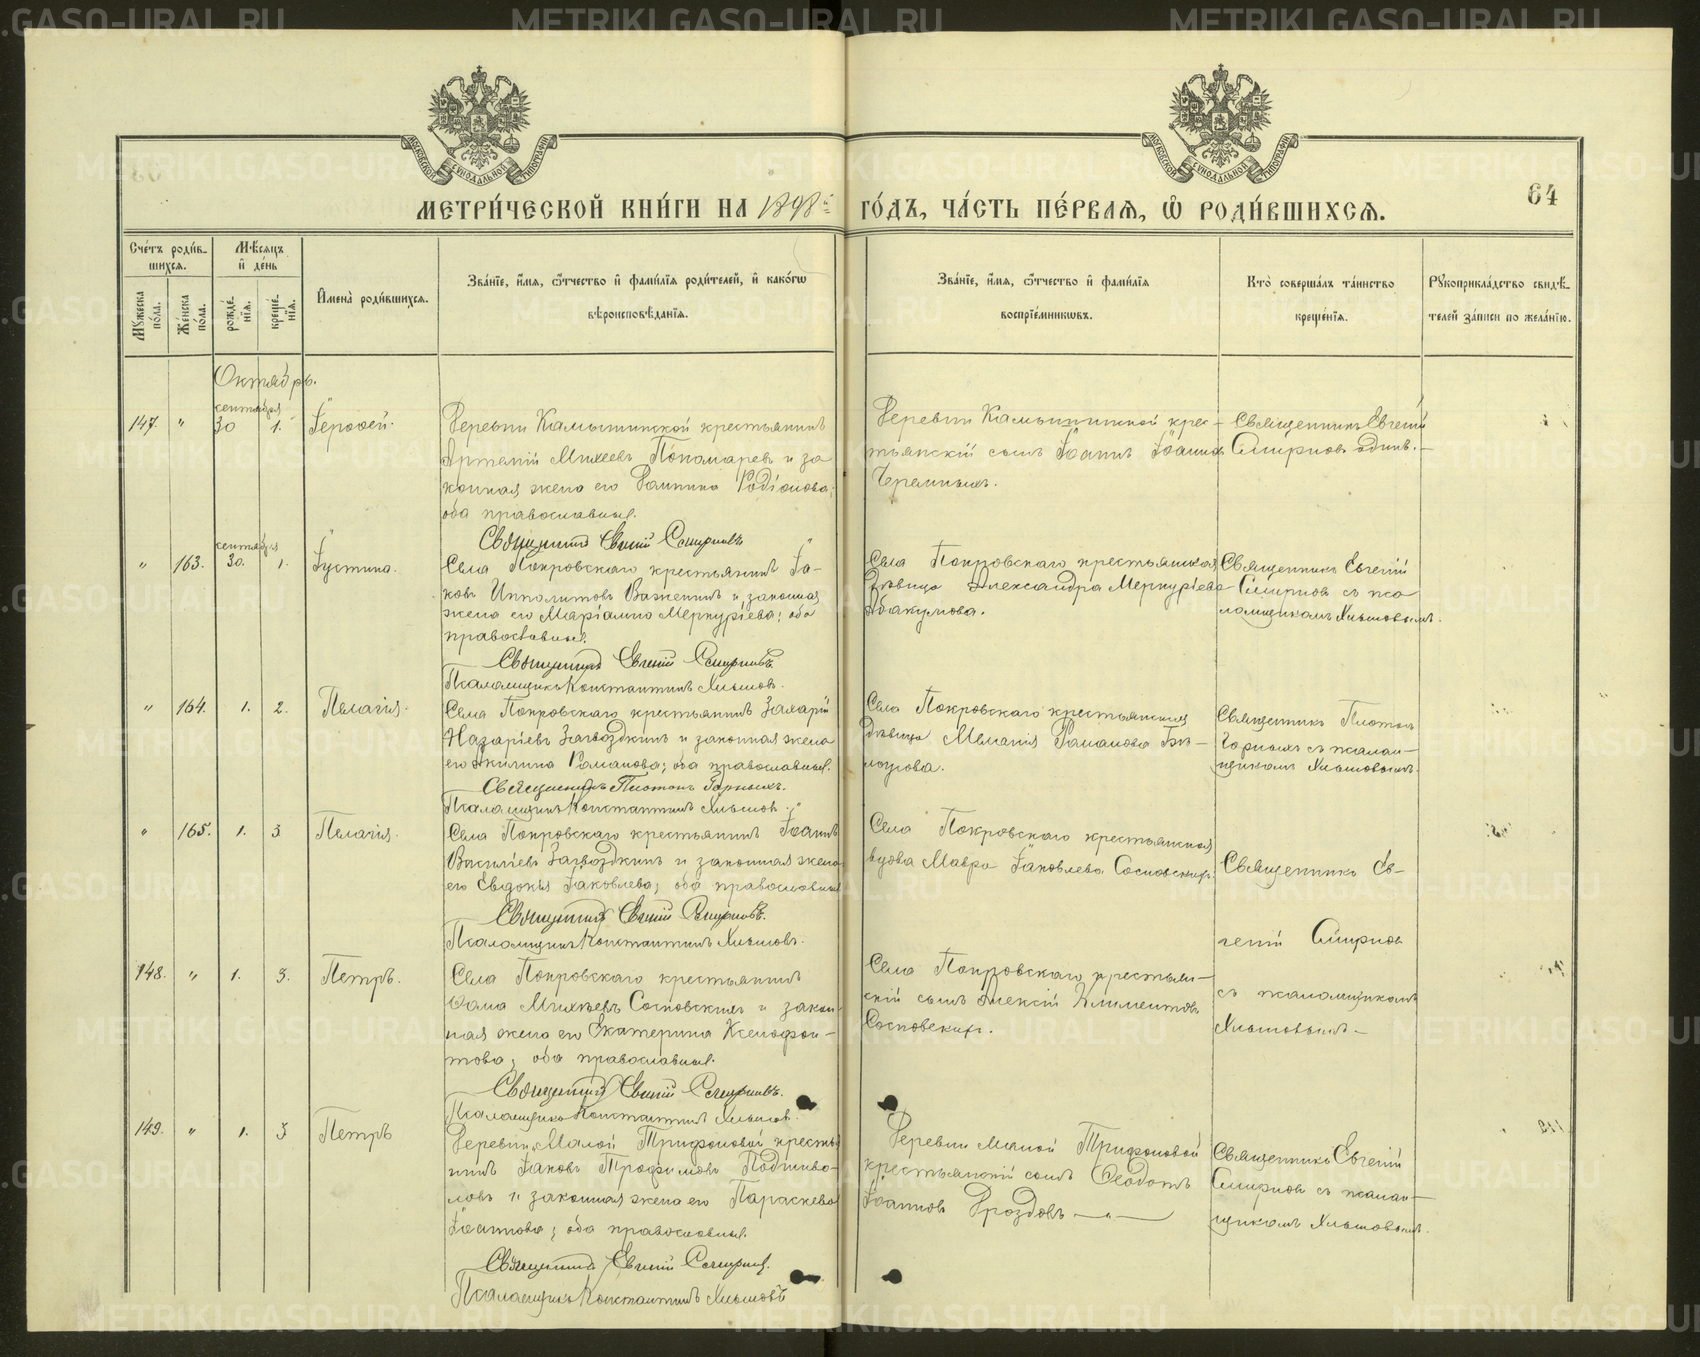 МЕТРИ́ЧЕСКОЙ КНИ́ГИ НА 1898й ГО́ДЪ, ЧА́СТЬ ПЕ́РВАЯ, Ѡ҆ РОДИ́ВШИХСЯ.
64
МОСКОВСКОЙ СѴНОДАЛЬНОЙ ТИПОГРАФІИ
МОСКОВСКОЙ СѴНОДАЛЬНОЙ ТИПОГРАФІИ
Сче́тъ роди́в-
шихся.
Мѣ́сяцъ
и҆ де́нь
Мꙋ́жеска по́ла.
Же́нска по́ла.
рожде́нїѧ.
креще́нїѧ.
И҆мена̀ роди́вшихся.
Зва́нїе, и҆́мя, ѻ҆́тчество и҆ фами́лїя роди́телей, и҆ како́гѡ
вѣроисповѣ́данїя.
Зва́нїе, и҆́мя, ѻ҆́тчество и҆ фами́лїя
воспрїе́мникѡвъ.
Кто̀ соверша́лъ та́инство
креще́нїя.
Рꙋкоприкла́дство свидѣ́-
телей за́писи по жела́нїю.
Октябрь.
147. " сентября 30 1. Іероѳей.
Деревни Камышинской крестьянинъ
Артемій Михеевъ Пономаревъ и за
конная жена его Домнина Родіонова;
оба православные.
Священникъ Евгеній Смирновъ
Деревни Камышинской крес-
тьянскій сынъ Іоаннъ Іоанновъ
Черемныхъ.
Священникъ Евгеній
Смирновъ одинъ.—
" 163. сентября 30. 1. Іустина.
Села Покровскаго крестьянинъ Іа-
ковъ Ипполитовъ Важенинъ и законная
жена его Маріамна Меркуріева; оба
православные.
Священникъ Евгеній Смирновъ.
Псаломщикъ Константинъ Хлыновъ.
Села Покровскаго крестьянская
дѣвица Александра Меркуріева
Абакумова.
Священникъ Евгеній
Смирновъ съ пса
ломщикомъ Хлыновымъ.
" 164. 1. 2. Пелагія.
Села Покровскаго крестьянинъ Захарій
Назаріевъ Загвоздкинъ и законная жена
его Акилина Романова; оба православные.
Священникъ Платонъ Горныхъ.
Псаломщикъ Константинъ Хлыновъ.
Села Покровскаго крестьянская
дѣвица Меланія Романова Бѣ-
лоусова.
Священникъ Платонъ
Горныхъ съ псалом-
щикомъ Хлыновымъ.
" 165. 1. 3. Пелагія.
Села Покровскаго крестьянинъ Іоаннъ
Василіевъ Загвоздкинъ и законная жена
его Евдокія Іаковлева; оба православные
Священникъ Евгеній Смирновъ.
Псаломщикъ Константинъ Хлыновъ.
Села Покровскаго крестьянская
вдова Мавра Іаковлева Сосновскихъ.
Священникъ Ев-
геній Смирновъ
съ псаломщикомъ
Хлыновымъ —
148. " 1. 3. Петръ.
Села Покровскаго крестьянинъ
Ѳома Михѣевъ Сосновскихъ и закон-
ная жена его Екатерина Ксенофон-
това; оба православные.
Священникъ Евгеній Смирновъ.
Псаломщикъ Константинъ Хлыновъ.
Села Покровскаго крестьян-
скій сынъ Алексій Климентовъ
Сосновскихъ.
149. " 1. 3 Петръ
Деревни Малой Трифоновой кресть
нинъ Іаковъ Трофимовъ Подшиво-
ловъ и законная жена его Параскева
Іоаннова; оба православные.
Священникъ Евгеній Смирновъ.
Псаломщикъ Константинъ Хлыновъ
Деревни Малой Трифоновой
крестьянскій сынъ Ѳеодотъ
Іоанновъ Дроздовъ —"—
Священникъ Евгеній
Смирновъ съ псалом-
щикомъ Хлыновымъ.
METRIKI.GASO-URAL.RU